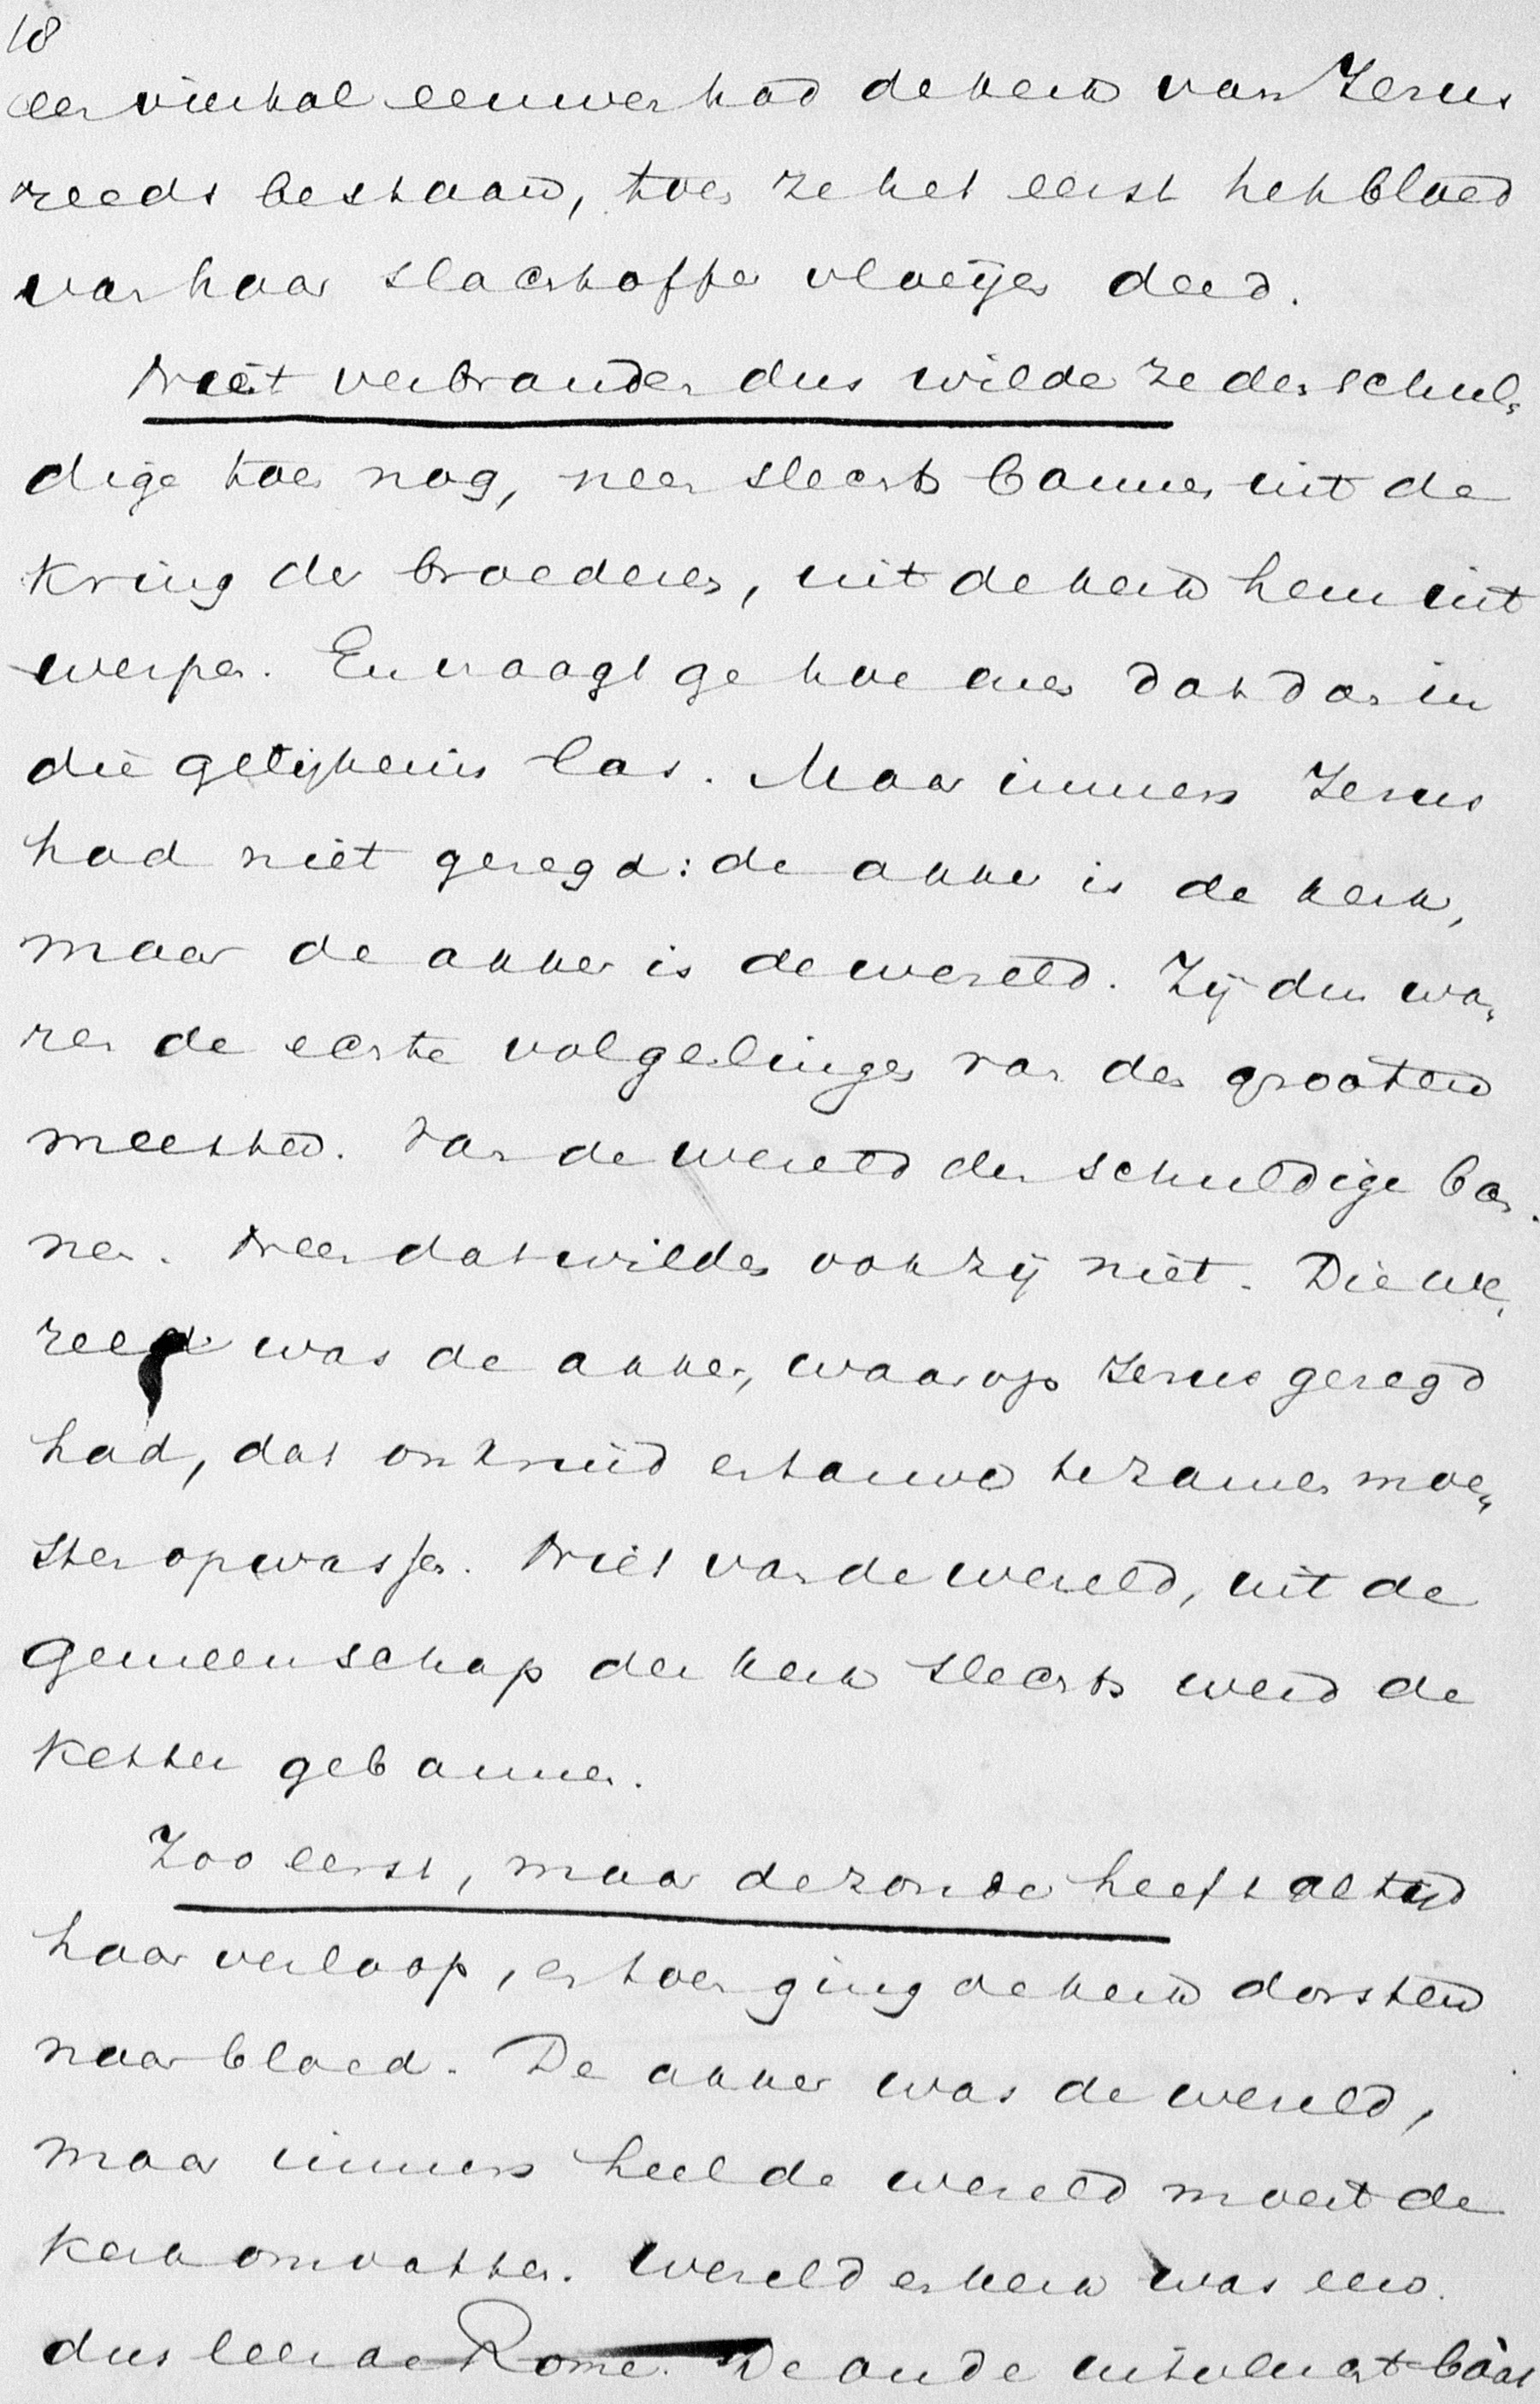 18
een viertal eeuwen had de kerk van Jezus
reeds bestaan, toen ze het eerst het bloed
van haar slachtoffer vloeijen deed.
Niet verbranden dus wilde ze den schul-
dige toen nog, neen slechts bannen uit de
kring der broederen, uit de kerk hem uit
werpen. En vraagt ge hoe men dat dan in
die gelijkenis las. Maar immers Jezus
had niet gezegd: de akker is de kerk,
maar de akker is de wereld. Zij dus wa-
ren de eerste volgelingen van den grooten
meester. Van de wereld den schuldige ban-
nen. Neen dat wilden ook zij niet. Die we-
reld was de akker, waarop Jezus gezegd
had, dat onkruid en tarwe te zamen moe-
sten opwassen. Niet van de wereld, uit de
gemeenschap der kerk slechts werd de
ketter gebannen.
Zoo eerst, maar de zonde heeft altijd
haar verloop, en toen ging de kerk dorsten
naar bloed. De akker was de wereld,
maar immers heel de wereld moest de
kerk omvatten. Wereld en kerk was een.
dus leerde Rome. De oude